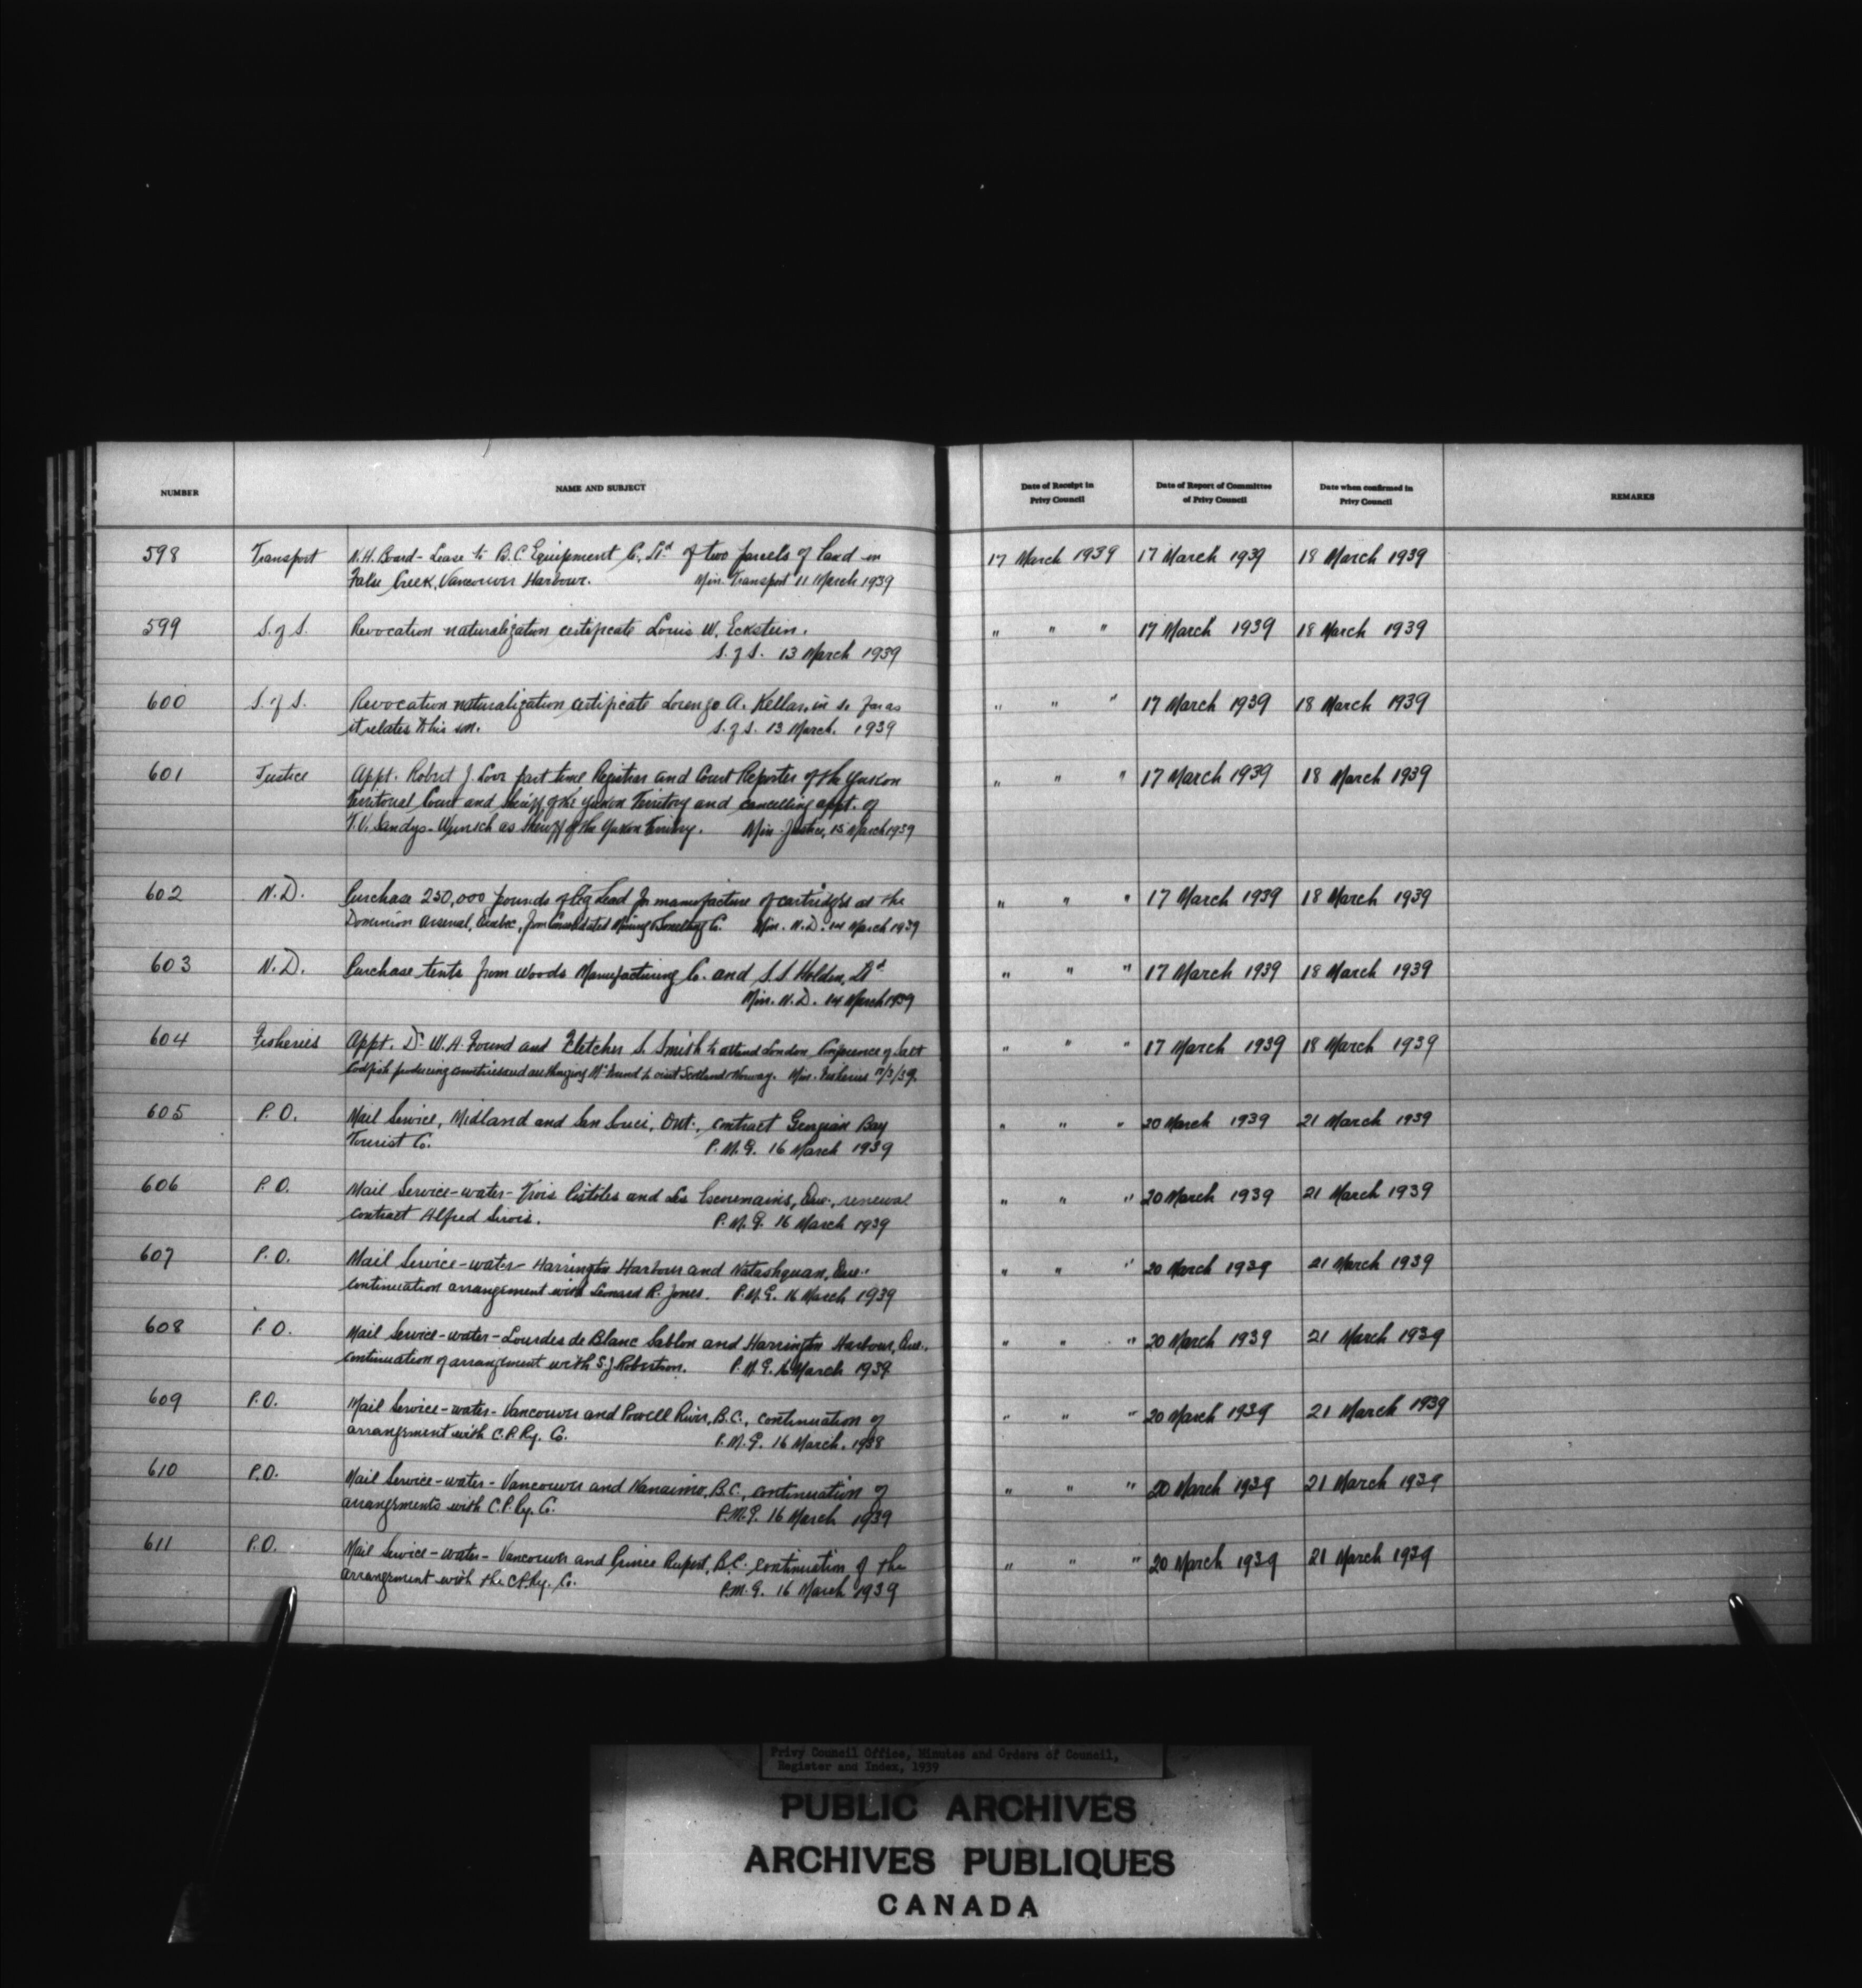 NUMBER NAME AND SUBJECT Date of Receipt in Privy Council Date of Report of Committee of Privy Council Date when confirmed in Privy Council REMARKS
598 Transport N.H. Board - Lease to B.C. Equipment Co. Ltd of two parcels of land in 17 March 1939 17 March 1939 18 March 1939
False Creek, Vancouver Harbour. Min. Transport 11 March 1939
599 S. of S. Revocation naturalization certificate Louis W. Eckstein. " " " 17 March 1939 18 March 1939
S. of S. 13 March 1939
600 S. of S. Revocation naturalization certificate Lorenzo A. Kellar, in so far as " " " 17 March 1939 18 March 1939
it relates to his son. S. of S. 13 March. 1939
601 Justice Appt. Robert J. Love part time Registrar and Court Reporter of the Yukon " " " 17 March 1939 18 March 1939
Territorial Court and Sheriff of the Yukon Territory and cancelling appt. of
T.V. Sandys-Wunsch as Sheriff of the Yukon Territory. Min. Justice, 15 March 1939
602 N.D. Purchase 250,000 pounds of Pig Lead for manufacture of cartridges at the " " " 17 March 1939 18 March 1939
Dominion Arsenal, Quebec, from Consolidated Mining & Smelting Co. Min. N.D. 14 March 1939
603 N.D. Purchase tents from Woods Manufacturing Co. and S.S. Holden, Ltd " " " 17 March 1939 18 March 1939
Min. N.D. 14 March 1939
604 Fisheries Appt. Dr. W.A. Found and Fletcher S. Smith to attend London Conference of Salt " " " 17 March 1939 18 March 1939
Codfish producing countries and authorizing Mr Found to visit Scotland & Norway. Min. Fisheries 17/3/39.
605 P.O. Mail Service, Midland and San Souci, Ont., contract Georgian Bay " " " 20 March 1939 21 March 1939
Tourist Co. P.M.G. 16 March 1939
606 P.O. Mail Service-water- Trois Pistoles and Les Escoumains, Que., renewal " " " 20 March 1939 21 March 1939
contract Alfred Sirois. P.M.G. 16 March 1939
607 P.O. Mail Service-water- Harrington Harbour and Natashquan, Que.. " " " 20 March 1939 21 March 1939
continuation arrangement with Leonard R. Jones. P.M.G. 16 March 1939
608 P.O. Mail Service-water-Lourdes de Blanc Sablon and Harrington Harbour, Que., " " " 20 March 1939 21 March 1939
continuation of arrangement with S.J. Robertson. P.M.G. 16 March 1939
609 P.O. Mail Service-water- Vancouver and Powell River, B.C., continuation of " " " 20 March 1939 21 March 1939
arrangement with C.P.Ry. Co. P.M.G. 16 March. 1938
610 P.O. Mail Service-water- Vancouver and Nanaimo, B.C., continuation of " " " 20 March 1939 21 March 1939
arrangements with C.P.Ry. Co. P.M.G. 16 March 1939
611 P.O. Mail Service-water- Vancouver and Prince Rupert, B.C. continuation of the " " " 20 March 1939 21 March 1939
arrangement with the C.P.Ry. Co. P.M.G. 16 March 1939
Privy Council Office, Minutes and Orders of Council,
Register and Index, 1939
PUBLIC ARCHIVES
ARCHIVES PUBLIQUES
CANADA